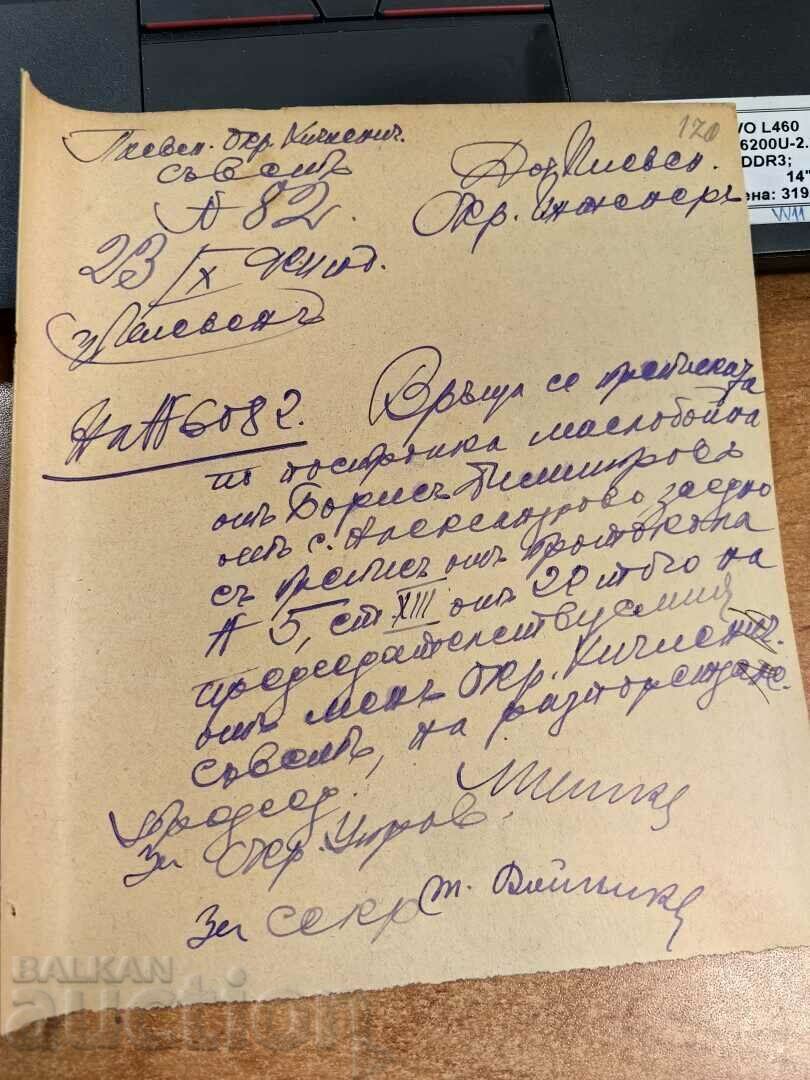 Плевен. Окр. Хигиенич.
съветъ
N 82
23/IX
гр. Плевенъ
120
До Плевен.
Окр. Инженеръ
На N 6082.
Връща се преписката
по постройка маслобойна
отъ Борисъ Димитровъ
отъ с. Александрово, заедно
съ преписъ отъ протокола
N 5, ст. XIII отъ 20 того на
председателствуемия
отъ менъ Окр. Хигиенич.
съветъ, на разпореждане.
Председ.
За Окр. Управ.
За секр.
VO L460
6200U-2.
DDR3;
14"
ена: 319
W11
BALKAN
auction